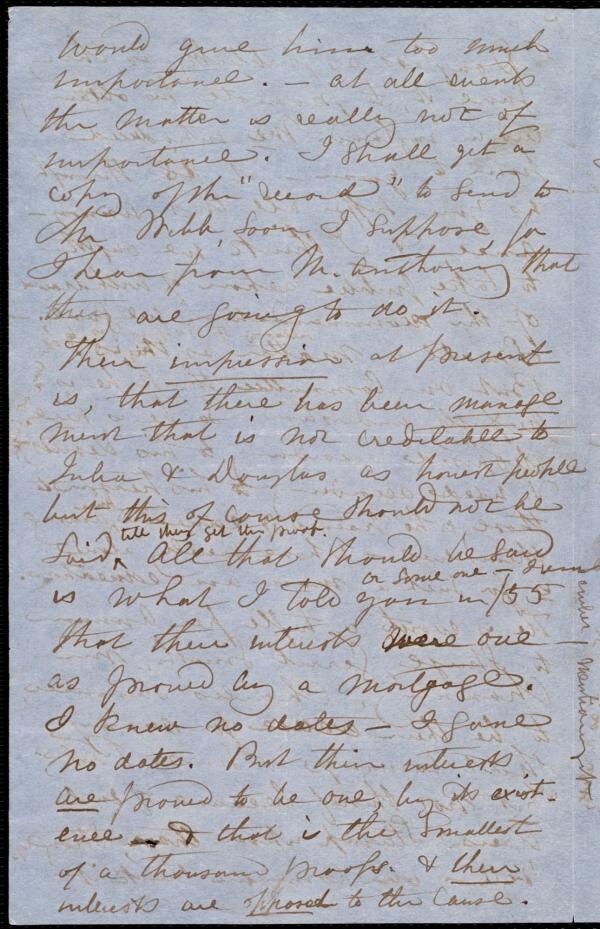 would give him too much
importance. – at all events
the matter is really not of
importance. I shall get a
copy of the "record" to send to
Mr Webb, soon I suppose, for
I hear from M. Anthony that
they are going to do it.
Their impression at present
is, that there has been manage
ment that is not creditable to
Julia & Douglas as honest people
but this of course should not be
till they get this proof.
said, All that should be said
or some one – I rem
is what I told you in /55
ember mentioning it
that their interests were one –
as proved by a mortgage.
I knew no dates – I gave
no dates. But their interests
are proved to be one, by its exist-
ence – & that is the smallest
of a thousand proofs. & their
interests are opposed to the cause.